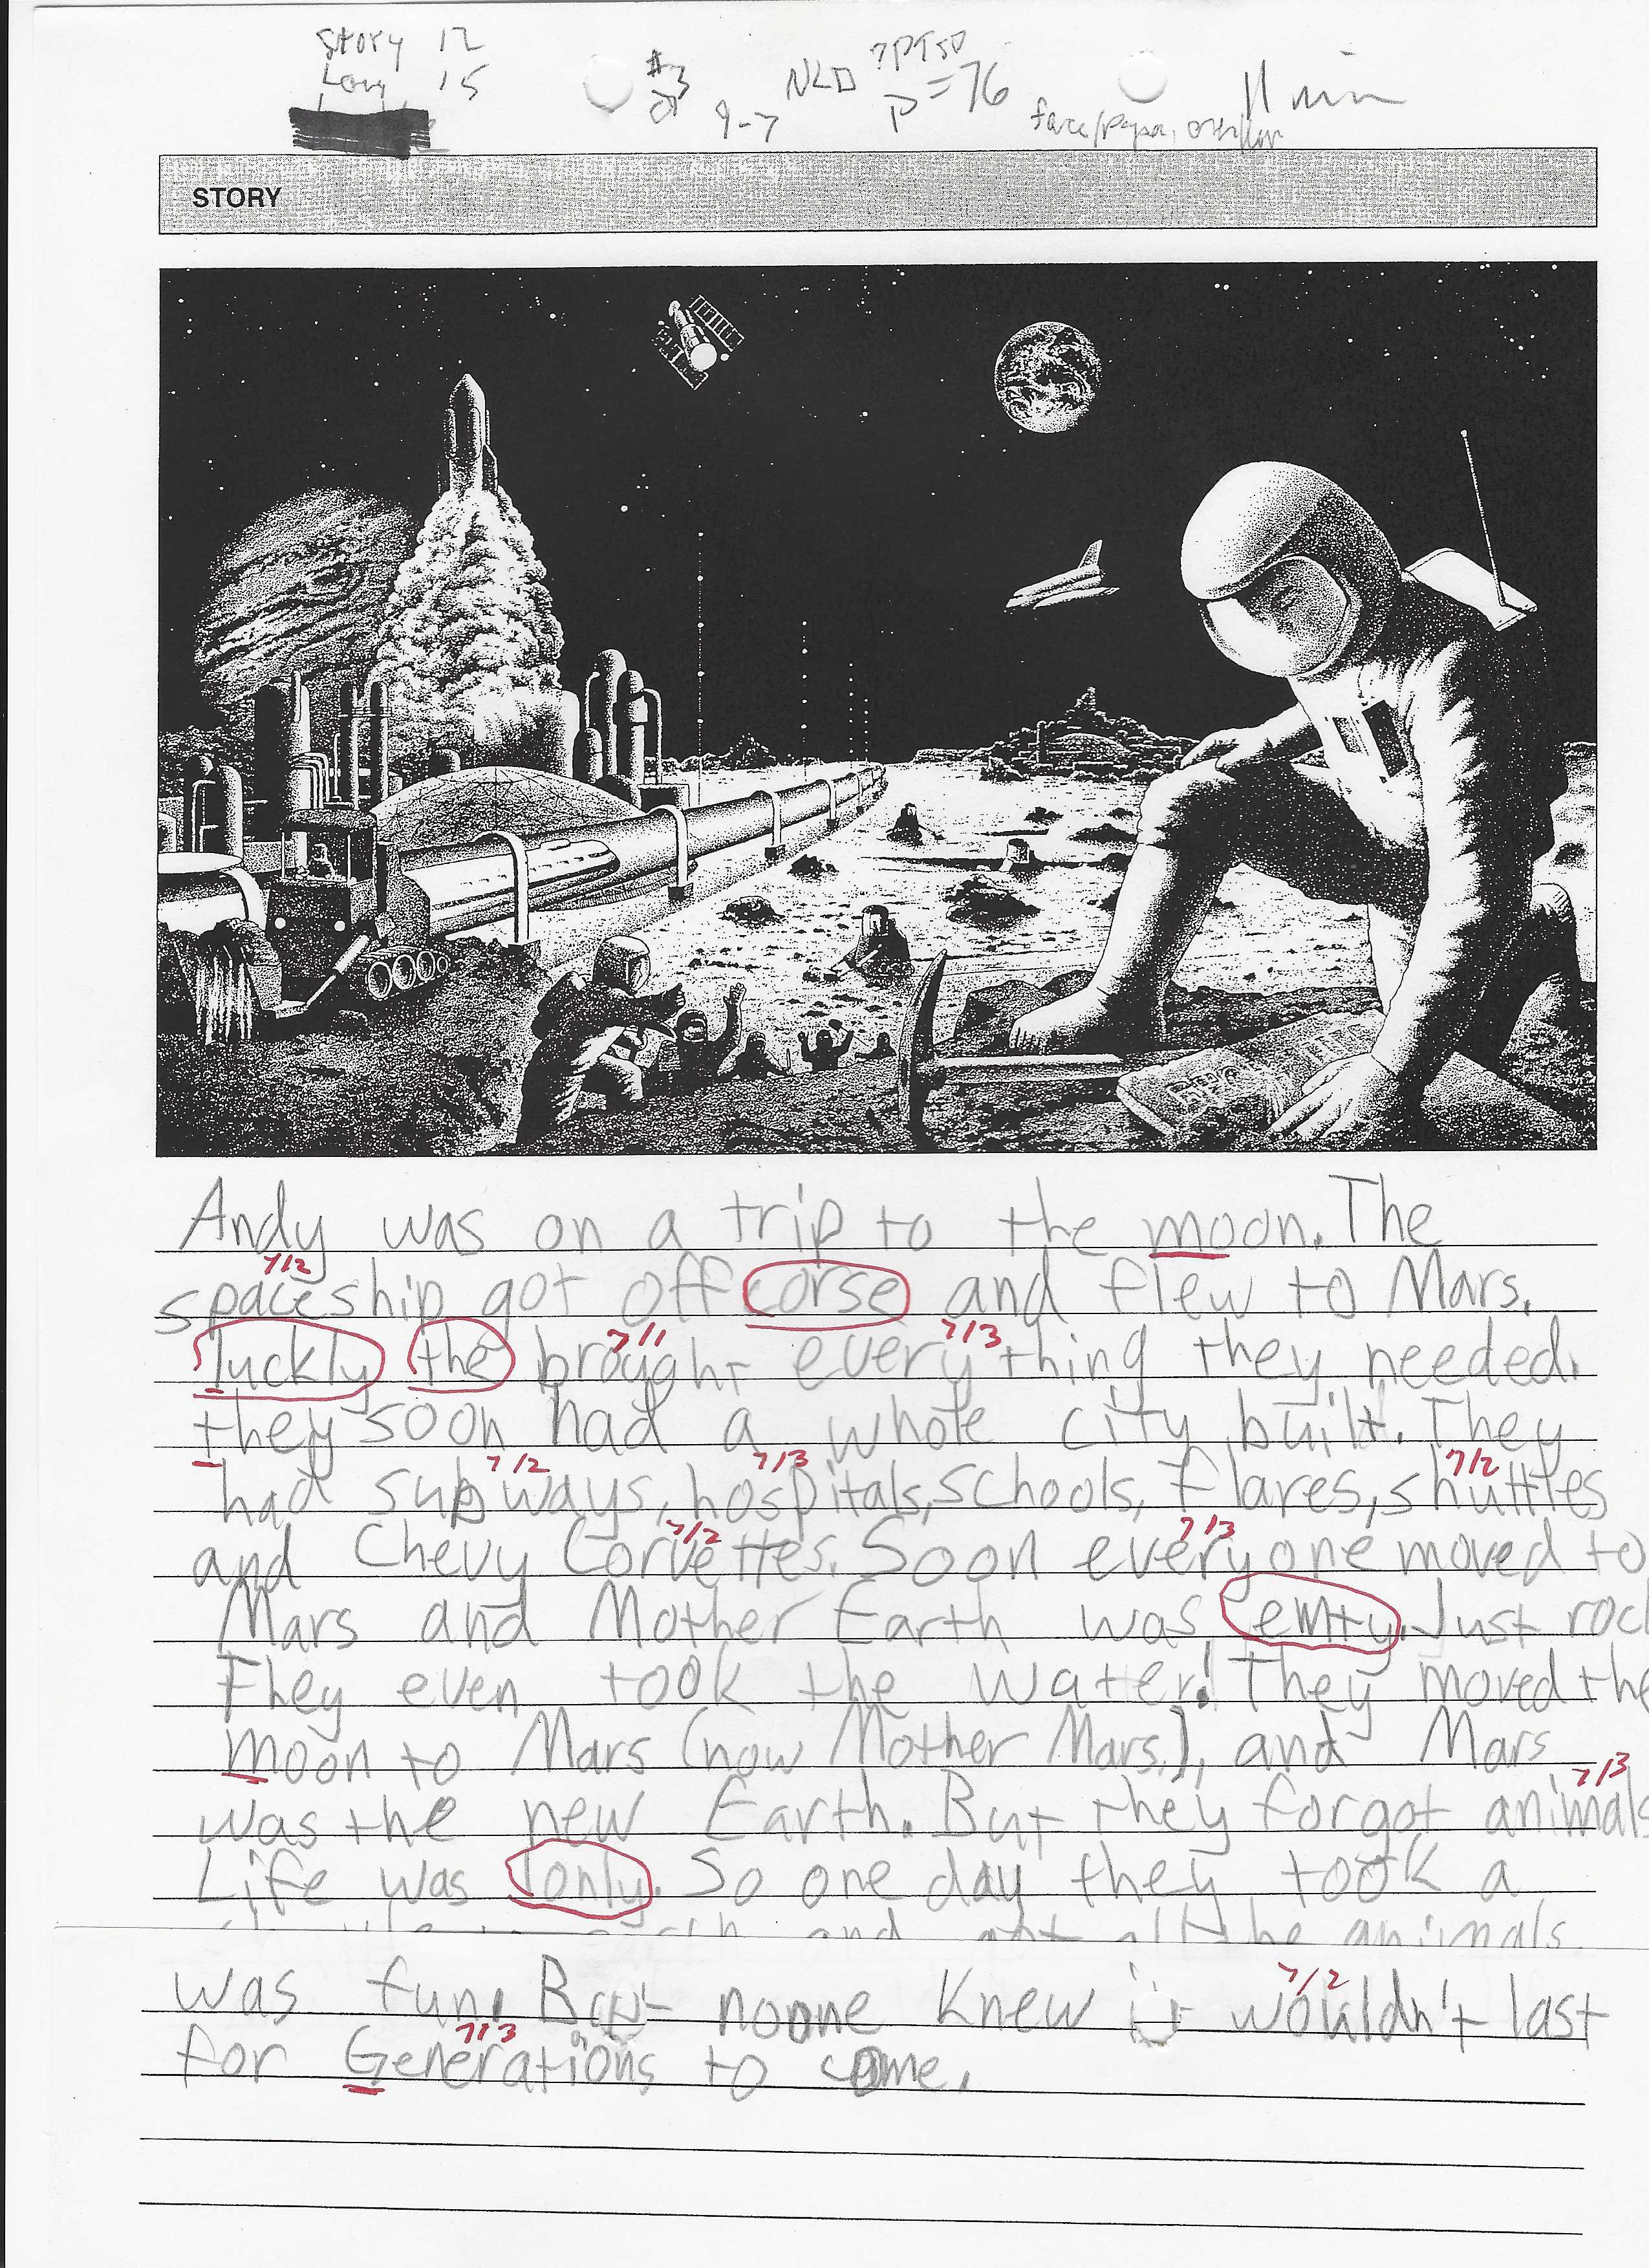 Story 12
#3
?PTSD
NLD
15
9-7
P=76
11 min
STORY
Andy was on a trip to the moon. The
7/2
spaceship got off corse and flew to Mars.
7/1 7/3
luckly the brought everything they needed.
they soon had a whole city built. They
7/2 7/3 7/2
had subways, hospitals, schools, flares, shuttles
7/2 7/3
and Chevy Corvettes. Soon everyone moved to
Mars and Mother Earth was emty. Just
They even took the water! They moved the
moon to Mars (now Mother Mars), and Mars
7/3
was the new Earth. But they forgot animals
Life was lonly. So one day they took a
and got all the animals.
7/2
was fun. But noone knew it wouldn't last
7/3
for Generations to come.